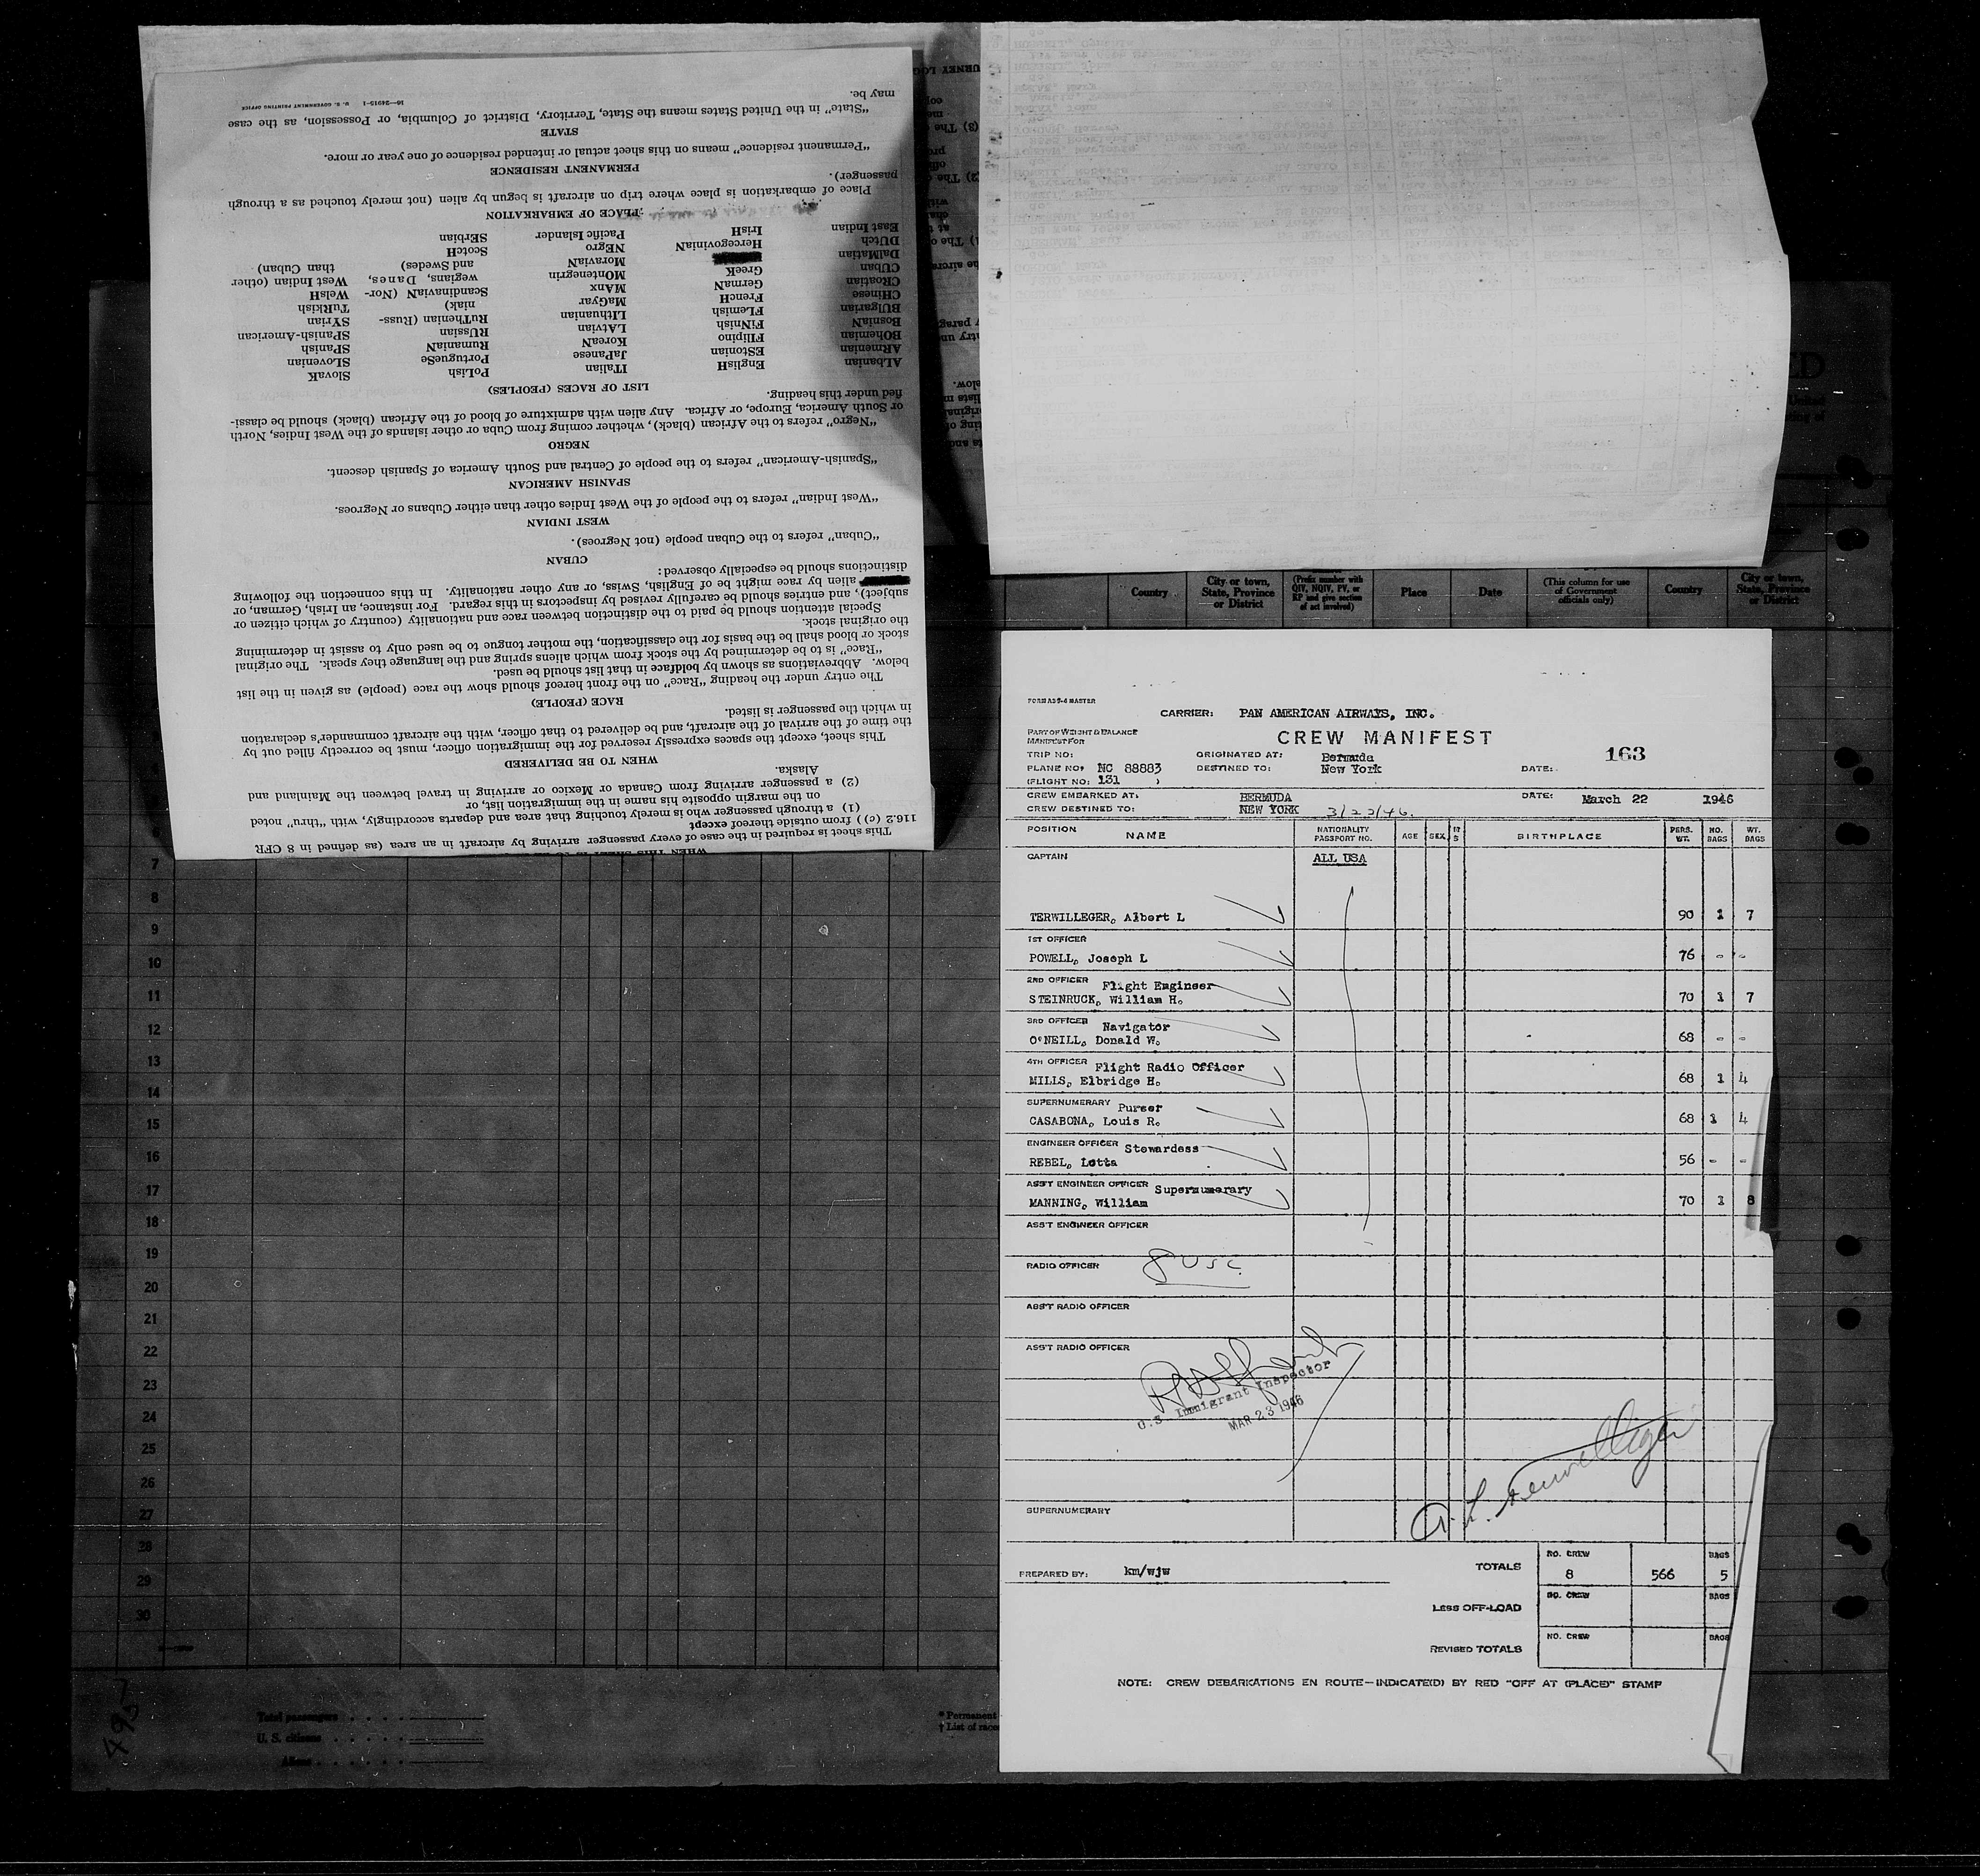 WHEN THIS SHEET IS TO BE
This sheet is required in the case of every passenger arriving by aircraft in an area (as defined in 8 CFR
116.2 (c) ) from outside thereof except
(1) a through passenger who is merely touching that area and departs accordingly, with "thru" noted
on the margin opposite his name in the immigration list, or
(2) a passenger arriving from Canada or Mexico or arriving in travel between the Mainland and
Alaska.
WHEN TO BE DELIVERED
This sheet, except the spaces expressly reserved for the immigration officer, must be correctly filled out by
the time of the arrival of the aircraft, and be delivered to that officer, with the aircraft commander's declaration
in which the passenger is listed.
RACE (PEOPLE)
The entry under the heading "Race" on the front hereof should show the race (people) as given in the list
below. Abbreviations as shown by boldface in that list should be used.
"Race" is to be determined by the stock from which aliens spring and the language they speak. The original
stock or blood shall be the basis for the classification, the mother tongue to be used only to assist in determining
the original stock.
Special attention should be paid to the distinction between race and nationality (country of which citizen or
subject), and entries should be carefully revised by inspectors in this regard. For instance, an Irish, German, or
alien by race might be of English, Swiss, or any other nationality. In this connection the following
distinctions should be especially observed:
CUBAN
"Cuban" refers to the Cuban people (not Negroes).
WEST INDIAN
"West Indian" refers to the people of the West Indies other than either Cubans or Negroes.
SPANISH AMERICAN
"Spanish-American" refers to the people of Central and South America of Spanish descent.
NEGRO
"Negro" refers to the African (black), whether coming from Cuba or other islands of the West Indies, North
or South America, Europe, or Africa. Any alien with admixture of blood of the African (black) should be classi-
fied under this heading.
LIST OF RACES (PEOPLES)
ALbanian EnglisH ITalian PoLish SlovaK
ARmenian EStonian JaPanese PortugueSe SLovenian
BOhemian FIlipino KoreaN RumaniaN SPanish
BosniaN FiNnish LAtvian RUssian SPanish-American
BUlgarian FLemish LIthuanian RuThenian (Russ- SYrian
CHinese FrencH MaGyar niak) TuRkish
CRoatian GermaN MAnx ScandinaviaN (Nor- WelsH
CUban GreeK MOntenegrin wegians, Danes, West Indian (other
DalMatian MoraviaN and Swedes) than Cuban)
DUtch HercegoviniaN NEgro ScotcH
East Indian IrisH Pacific Islander SErbian
PLACE OF EMBARKATION
Place of embarkation is place where trip on aircraft is begun by alien (not merely touched as a through
passenger).
PERMANENT RESIDENCE
"Permanent residence" means on this sheet actual or intended residence of one year or more.
STATE
"State" in the United States means the State, Territory, District of Columbia, or Possession, as the case
may be.
16—24915-1 U. S. GOVERNMENT PRINTING OFFICE
Country City or town, State, Province or District (Prefix number with QIV, NQIV, PV, or RP and give section of act involved) Place Date (This column for use of Government officials only) Country City or town, State, Province or District
FORM A35-4 MASTER
CARRIER: PAN AMERICAN AIRWAYS, INC.
PART OF WEIGHT & BALANCE
MANIFEST FOR
CREW MANIFEST
163
TRIP NO: ORIGINATED AT: Bermuda
PLANE NO: NC 88883 DESTINED TO: New York DATE:
(FLIGHT NO: 131 )
CREW EMBARKED AT: BERMUDA DATE: March 22 1946
CREW DESTINED TO: NEW YORK 3/23/46.
POSITION NAME NATIONALITY PASSPORT NO. AGE SEX BIRTHPLACE PERS. WT. NO. BAGS WT. BAGS
CAPTAIN ALL USA
TERWILLEGER, Albert L 90 1 7
1ST OFFICER
POWELL, Joseph L 76 - -
2ND OFFICER Flight Engineer
STEINRUCK, William H. 70 1 7
3RD OFFICER Navigator
O'NEILL, Donald W. 68 - -
4TH OFFICER Flight Radio Officer
MILLS, Elbridge H. 68 1 4
SUPERNUMERARY Purser
CASABONA, Louis R. 68 1 4
ENGINEER OFFICER Stewardess
REBEL, Lotta 56 - -
ASS'T ENGINEER OFFICER Supernumerary
MANNING, William 70 1 8
ASS'T ENGINEER OFFICER
RADIO OFFICER 8 USC
ASS'T RADIO OFFICER
ASS'T RADIO OFFICER
U.S. Immigrant Inspector
MAR 23 1946
A. L. Terwilleger
SUPERNUMERARY
PREPARED BY: km/wjw
TOTALS NO. CREW 8 566 BAGS 5
LESS OFF-LOAD NO. CREW BAGS
REVISED TOTALS NO. CREW BAGS
NOTE: CREW DEBARKATIONS EN ROUTE—INDICATE(D) BY RED "OFF AT (PLACE)" STAMP
7
8
9
10
11
12
13
14
15
16
17
18
19
20
21
22
23
24
25
26
27
28
29
30
Total passengers
U. S. citizens
Aliens
* Permanent
† List of races